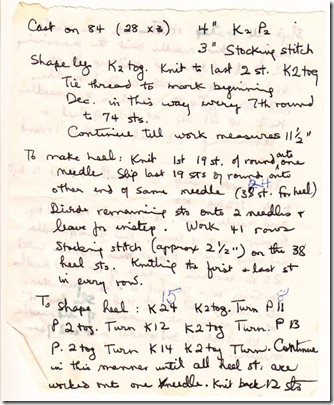 Cast on 84 (28 x 3) 4" K2 P2
3" Stocking stitch
Shape leg K2tog. Knit to last 2 st. K2tog
Tie thread to mark beginning
Dec. in this way every 7th round
to 74 sts.
Continue till work measures 11½"
To make heel: Knit 1st 19 st. of round onto one
needle Slip last 19 sts of round onto
other end of same needle (38 st. for heel) 24
Divide remaining sts onto 2 needles &
leave for instep. Work 41 rows
Stocking stitch (approx 2½") on the 38
heel sts. Knitting the first & last st
in every row.
15
To Shape heel: K24 K2tog. Turn P11
P 2tog. Turn K12 K2tog Turn. P13
P. 2tog Turn K14 K2tog Turn. Continue
in this manner until all heel st. are
worked onto one needle. Knit back 12 sts